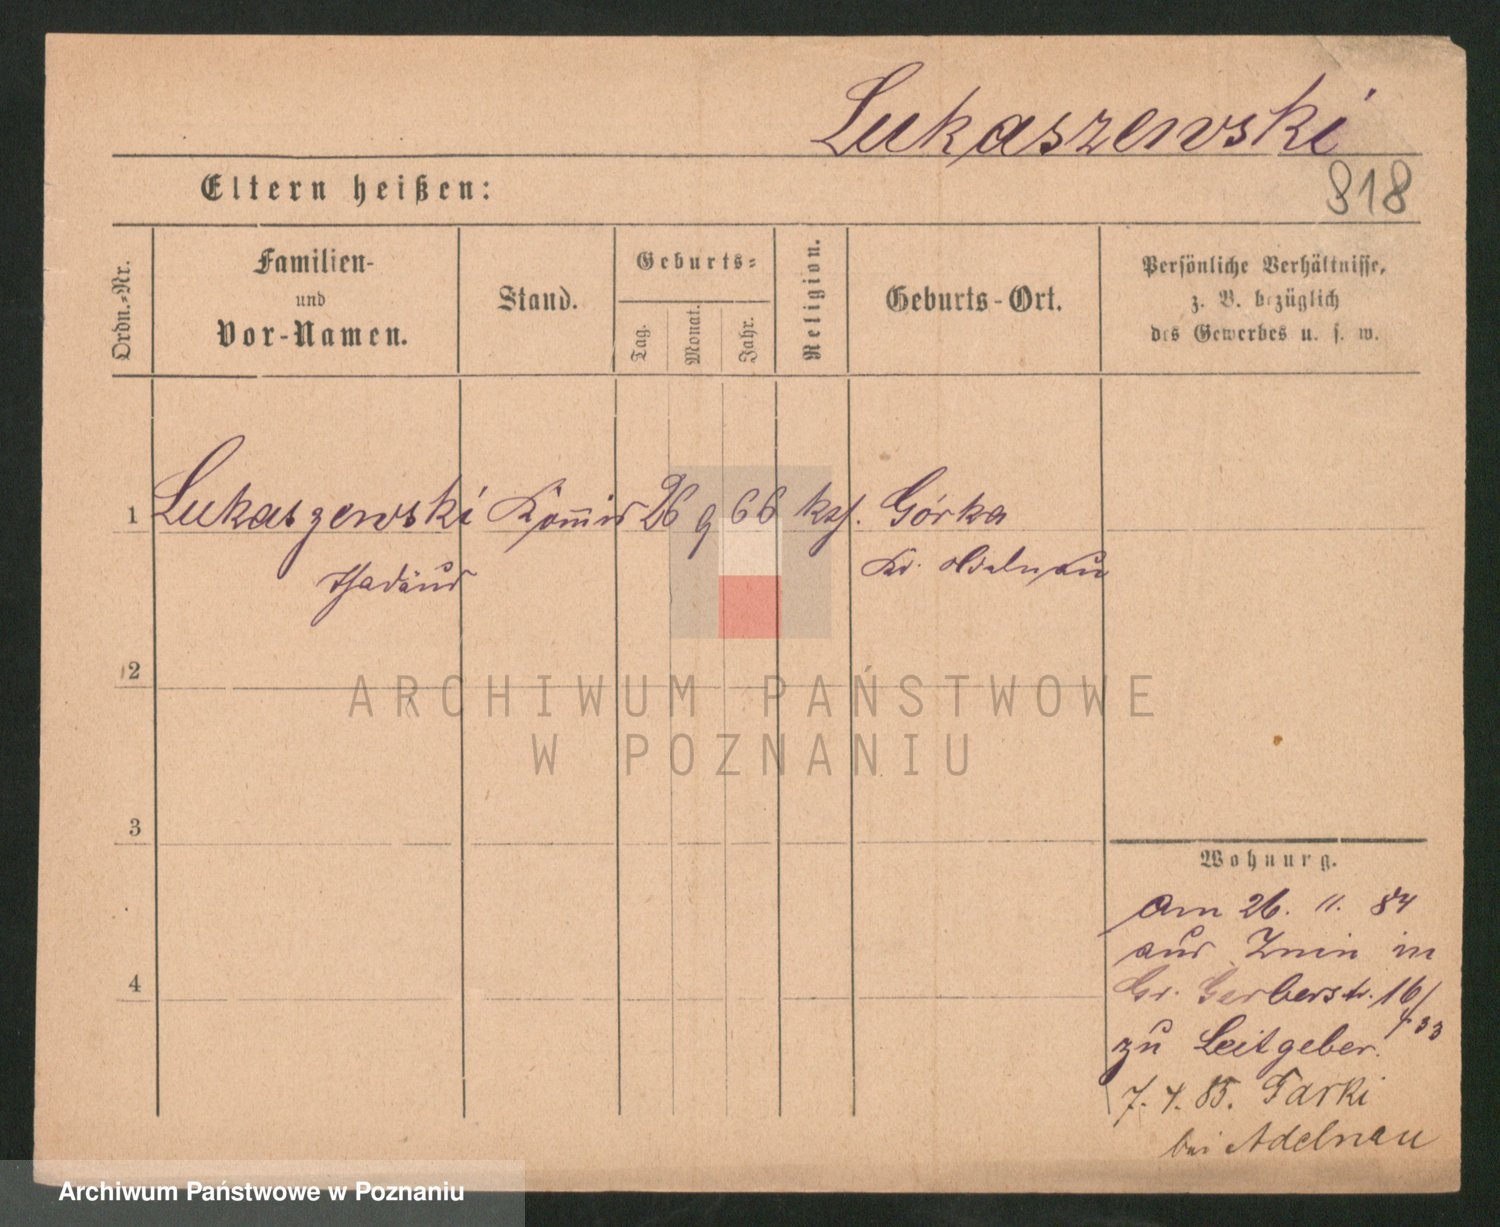 Lukaszewski
Eltern heißen:
318
Ordn.-Nr.
Familien-
und
Vor-Namen.
Stand.
Geburts-
Tag.
Monat.
Jahr.
Religion.
Geburts-Ort.
Persönliche Verhältnisse,
z. B. bezüglich
des Gewerbes u. s. w.
1 Lukaszewski Kom̅is 26 9 66 kath. Górka
Thadäus Kr. Adelnau
2
ARCHIWUM PAŃSTWOWE
W POZNANIU
3
Wohnung.
Am 26. 11. 84
aus Znin in
4
Gr. Gerberstr. 16/
433
zu Leitgeber.
7. 4. 85. Tarki
bei Adelnau
Archiwum Państwowe w Poznaniu